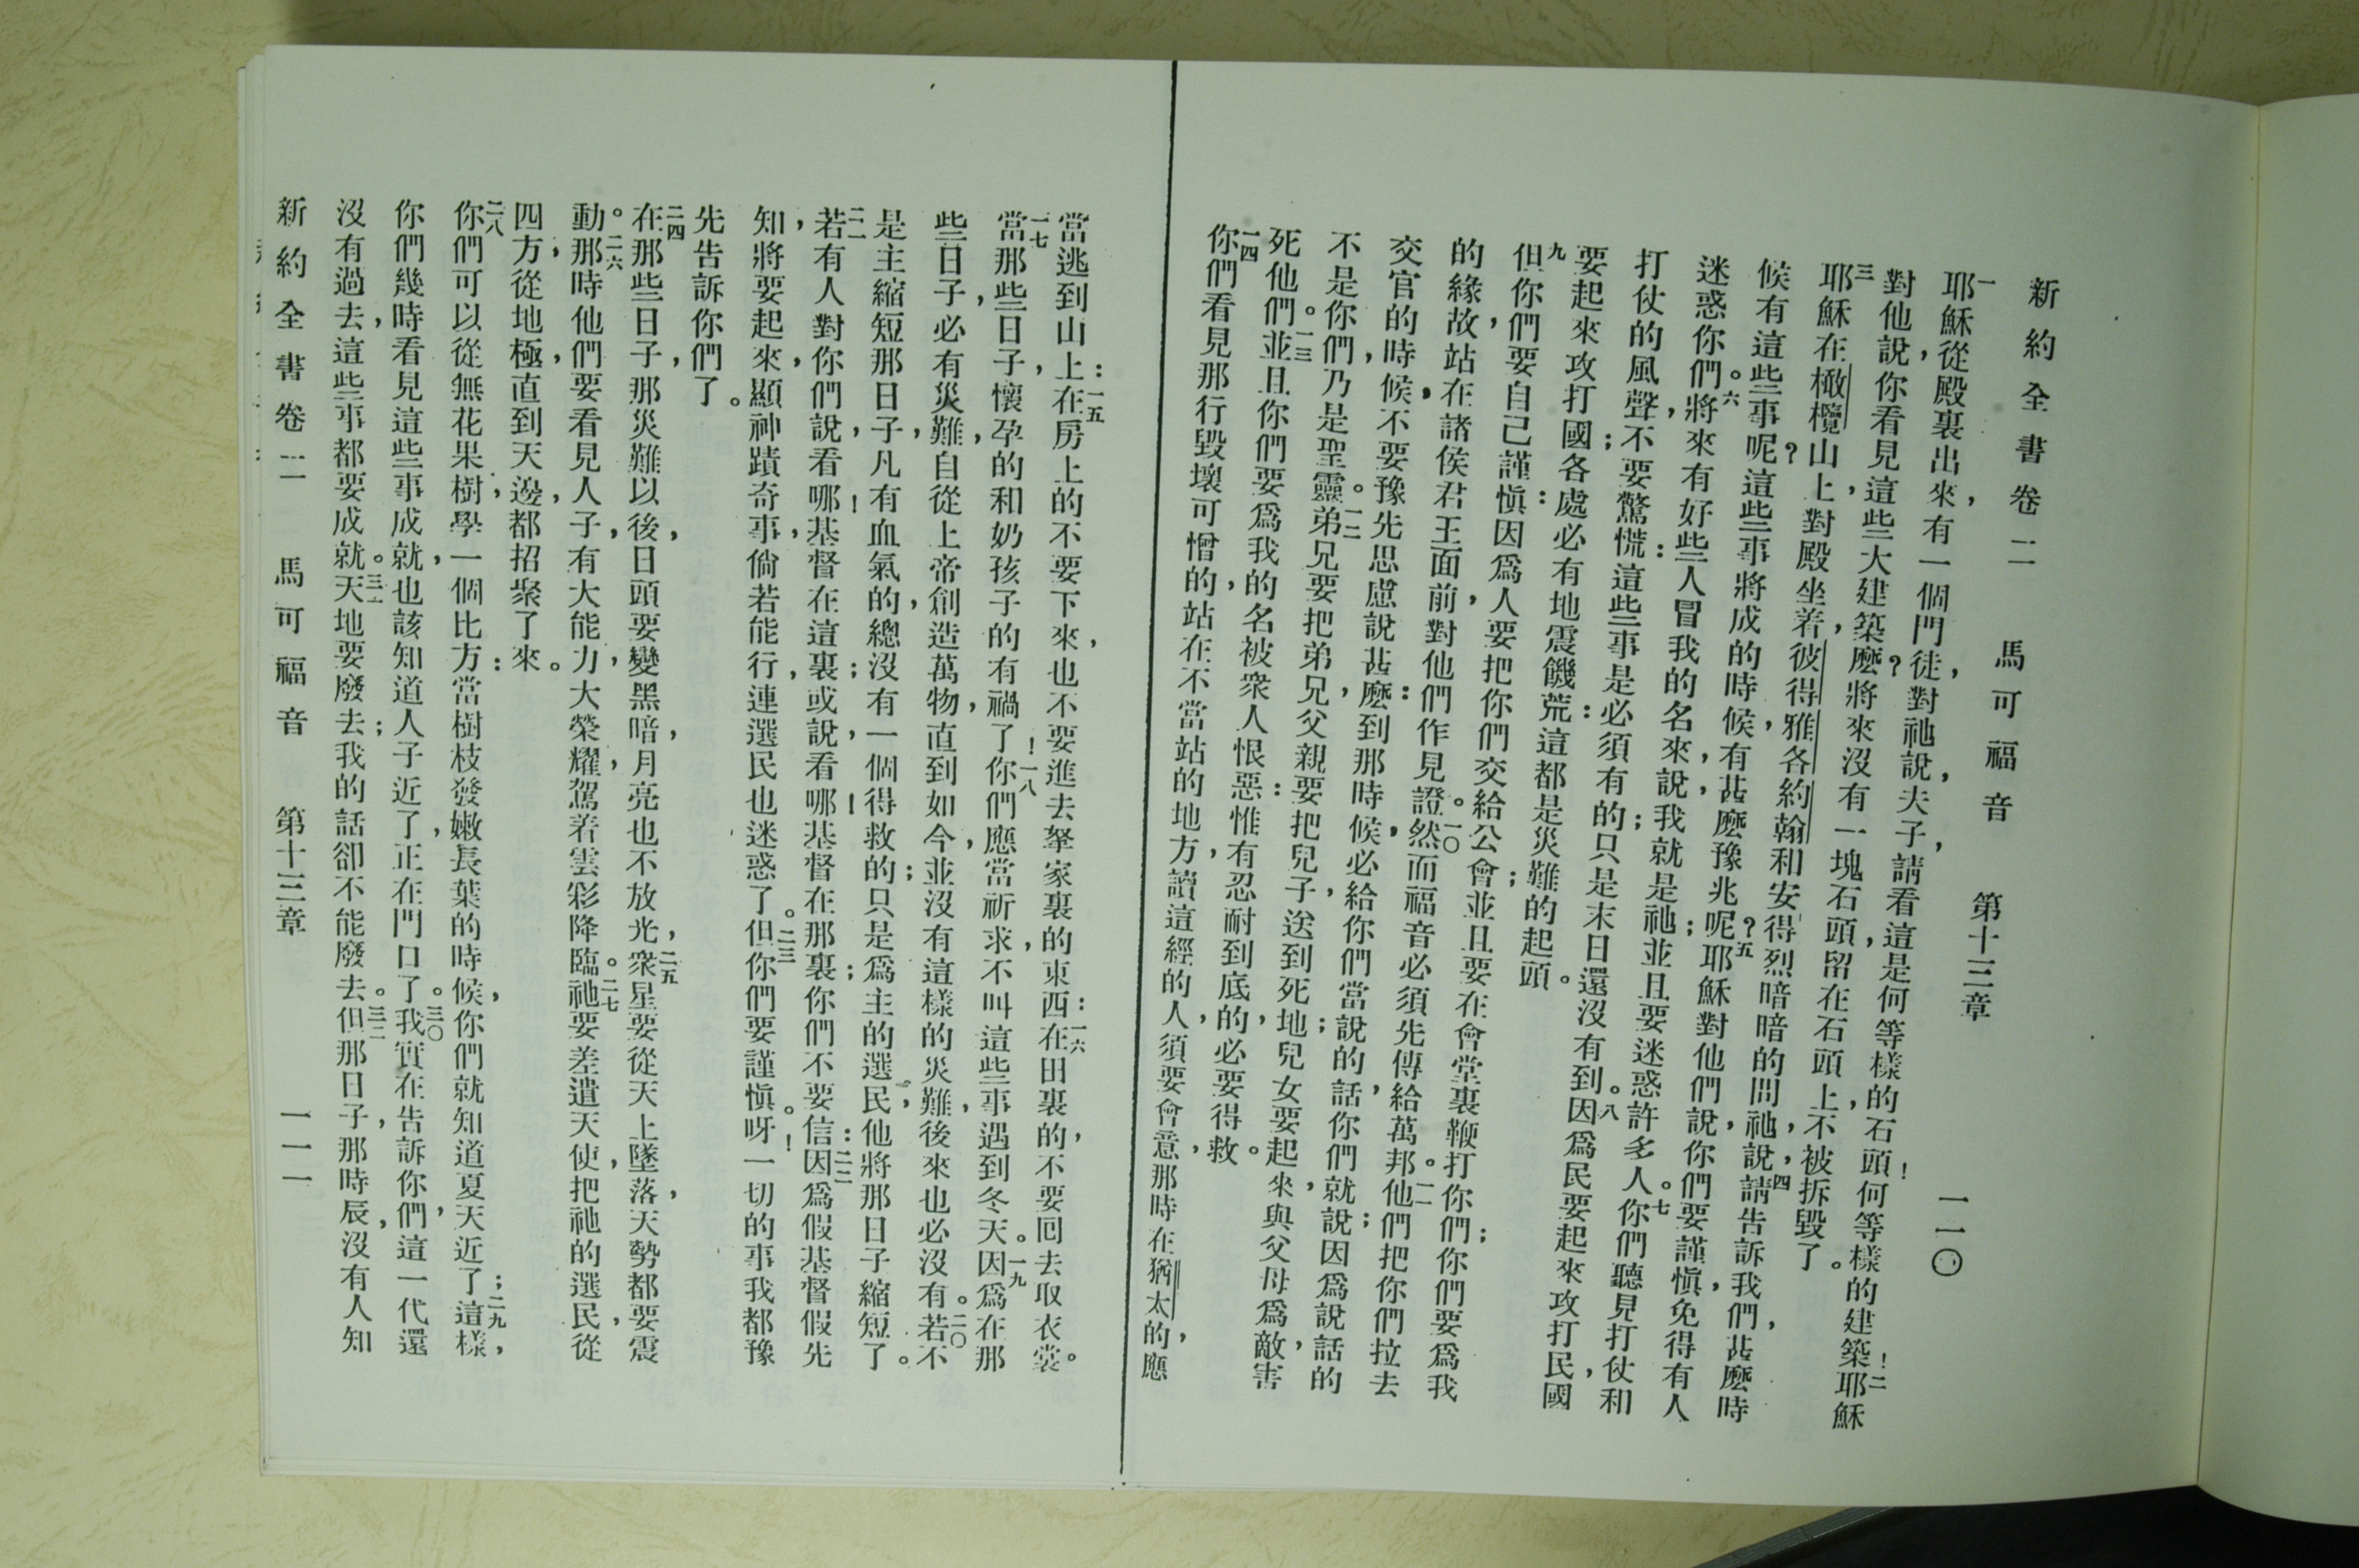 新約全書卷二 馬可福音 第十三章 一一〇
一耶穌從殿裏出來，有一個門徒，對祂說，夫子，請看這是何等樣的石頭！何等樣的建築！二耶穌
對他說，你看見這些大建築麼？將來沒有一塊石頭，留在石頭上，不被拆毀了。
三耶穌在橄欖山上，對殿坐着，彼得雅各約翰和安得烈暗暗的問祂說，四請告訴我們，甚麼時
候有這些事呢？這些事將成的時候，有甚麼豫兆呢？五耶穌對他們說，你們要謹慎，免得有人
迷惑你們。六將來有好些人冒我的名來，說，我就是祂；並且要迷惑許多人。七你們聽見打仗和
打仗的風聲，不要驚慌：這些事是必須有的；只是末日還沒有到。八因爲民要起來攻打民，國
要起來攻打國；各處必有地震饑荒：這都是災難的起頭。
九但你們要自己謹愼：因爲人要把你們交給公會；並且要在會堂裏鞭打你們；你們要爲我
的緣故，站在諸侯君王面前，對他們作見證。一〇然而福音必須先傳給萬邦。一一他們把你們拉去
交官的時候，不要豫先思慮說甚麼：到那時候，必給你們當說的話，你們就說；因爲說話的
不是你們，乃是聖靈。一二弟兄要把弟兄，父親要把兒子，送到死地；兒女要起來，與父母爲敵，害
死他們。一三並且你們要爲我的名，被衆人恨惡：惟有忍耐到底的，必要得救。
一四你們看見那行毀壞可憎的，站在不當站的地方，讀這經的人，須要會意，那時在猶太的，應
當逃到山上：一五在房上的不要下來，也不要進去拏家裏的東西：一六在田裏的，不要回去取衣裳。
一七當那些日子，懷孕的和奶孩子的有禍了！一八你們應當祈求，不叫這些事遇到冬天。一九因爲在那
些日子，必有災難，自從上帝創造萬物，直到如今，並沒有這樣的災難，後來也必沒有。二〇若不
是主縮短那日子，凡有血氣的，總沒有一個得救的；只是爲主的選民，他將那日子縮短了。
二一若有人對你們說，看哪！基督在這裏；或說，看哪！基督在那裏；你們不要信：二二因爲假基督假先
知，將要起來，顯神蹟奇事，倘若能行，連選民也迷惑了。二三但你們要謹愼。呀！一切的事我都豫
先告訴你們了。
二四在那些日子，那災難以後，日頭要變黑暗，月亮也不放光，二五衆星要從天上墜落，天勢都要震
動。二六那時，他們要看見人子，有大能力，大榮耀，駕着雲彩降臨。二七祂要差遣天使，把祂的選民，從
四方，從地極，直到天邊，都招聚了來。
二八你們可以從無花果樹，學一個比方：當樹枝發嫩長葉的時候，你們就知道夏天近了；二九這樣，
你們幾時看見這些事成就，也該知道人子近了；正在門口了。三〇我實在告訴你們，這一代還
沒有過去，這些事都要成就。三一天地要廢去；我的話卻不能廢去。三二但那日子，那時辰，沒有人知
新約全書卷二 馬可福音 第十三章 一一一